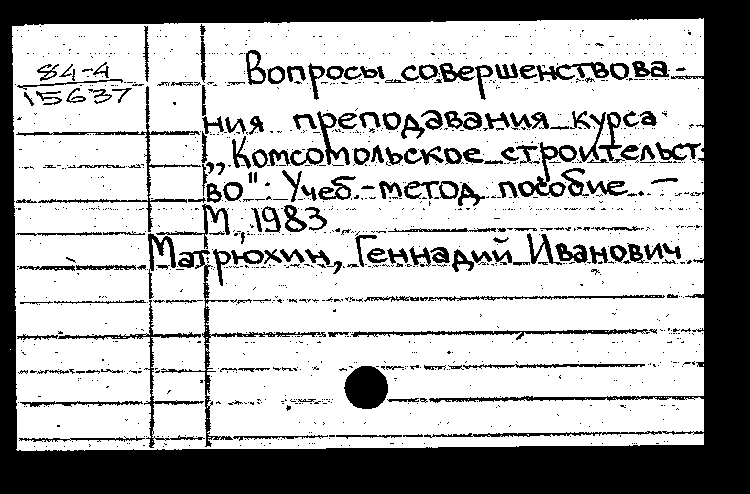 84-4
15637
Вопросы совершенствова-
ния преподавания курса
„Комсомольское строительст-
во": Учеб.-метод. пособие. —
М., 1983
Матрюхин, Геннадий Иванович